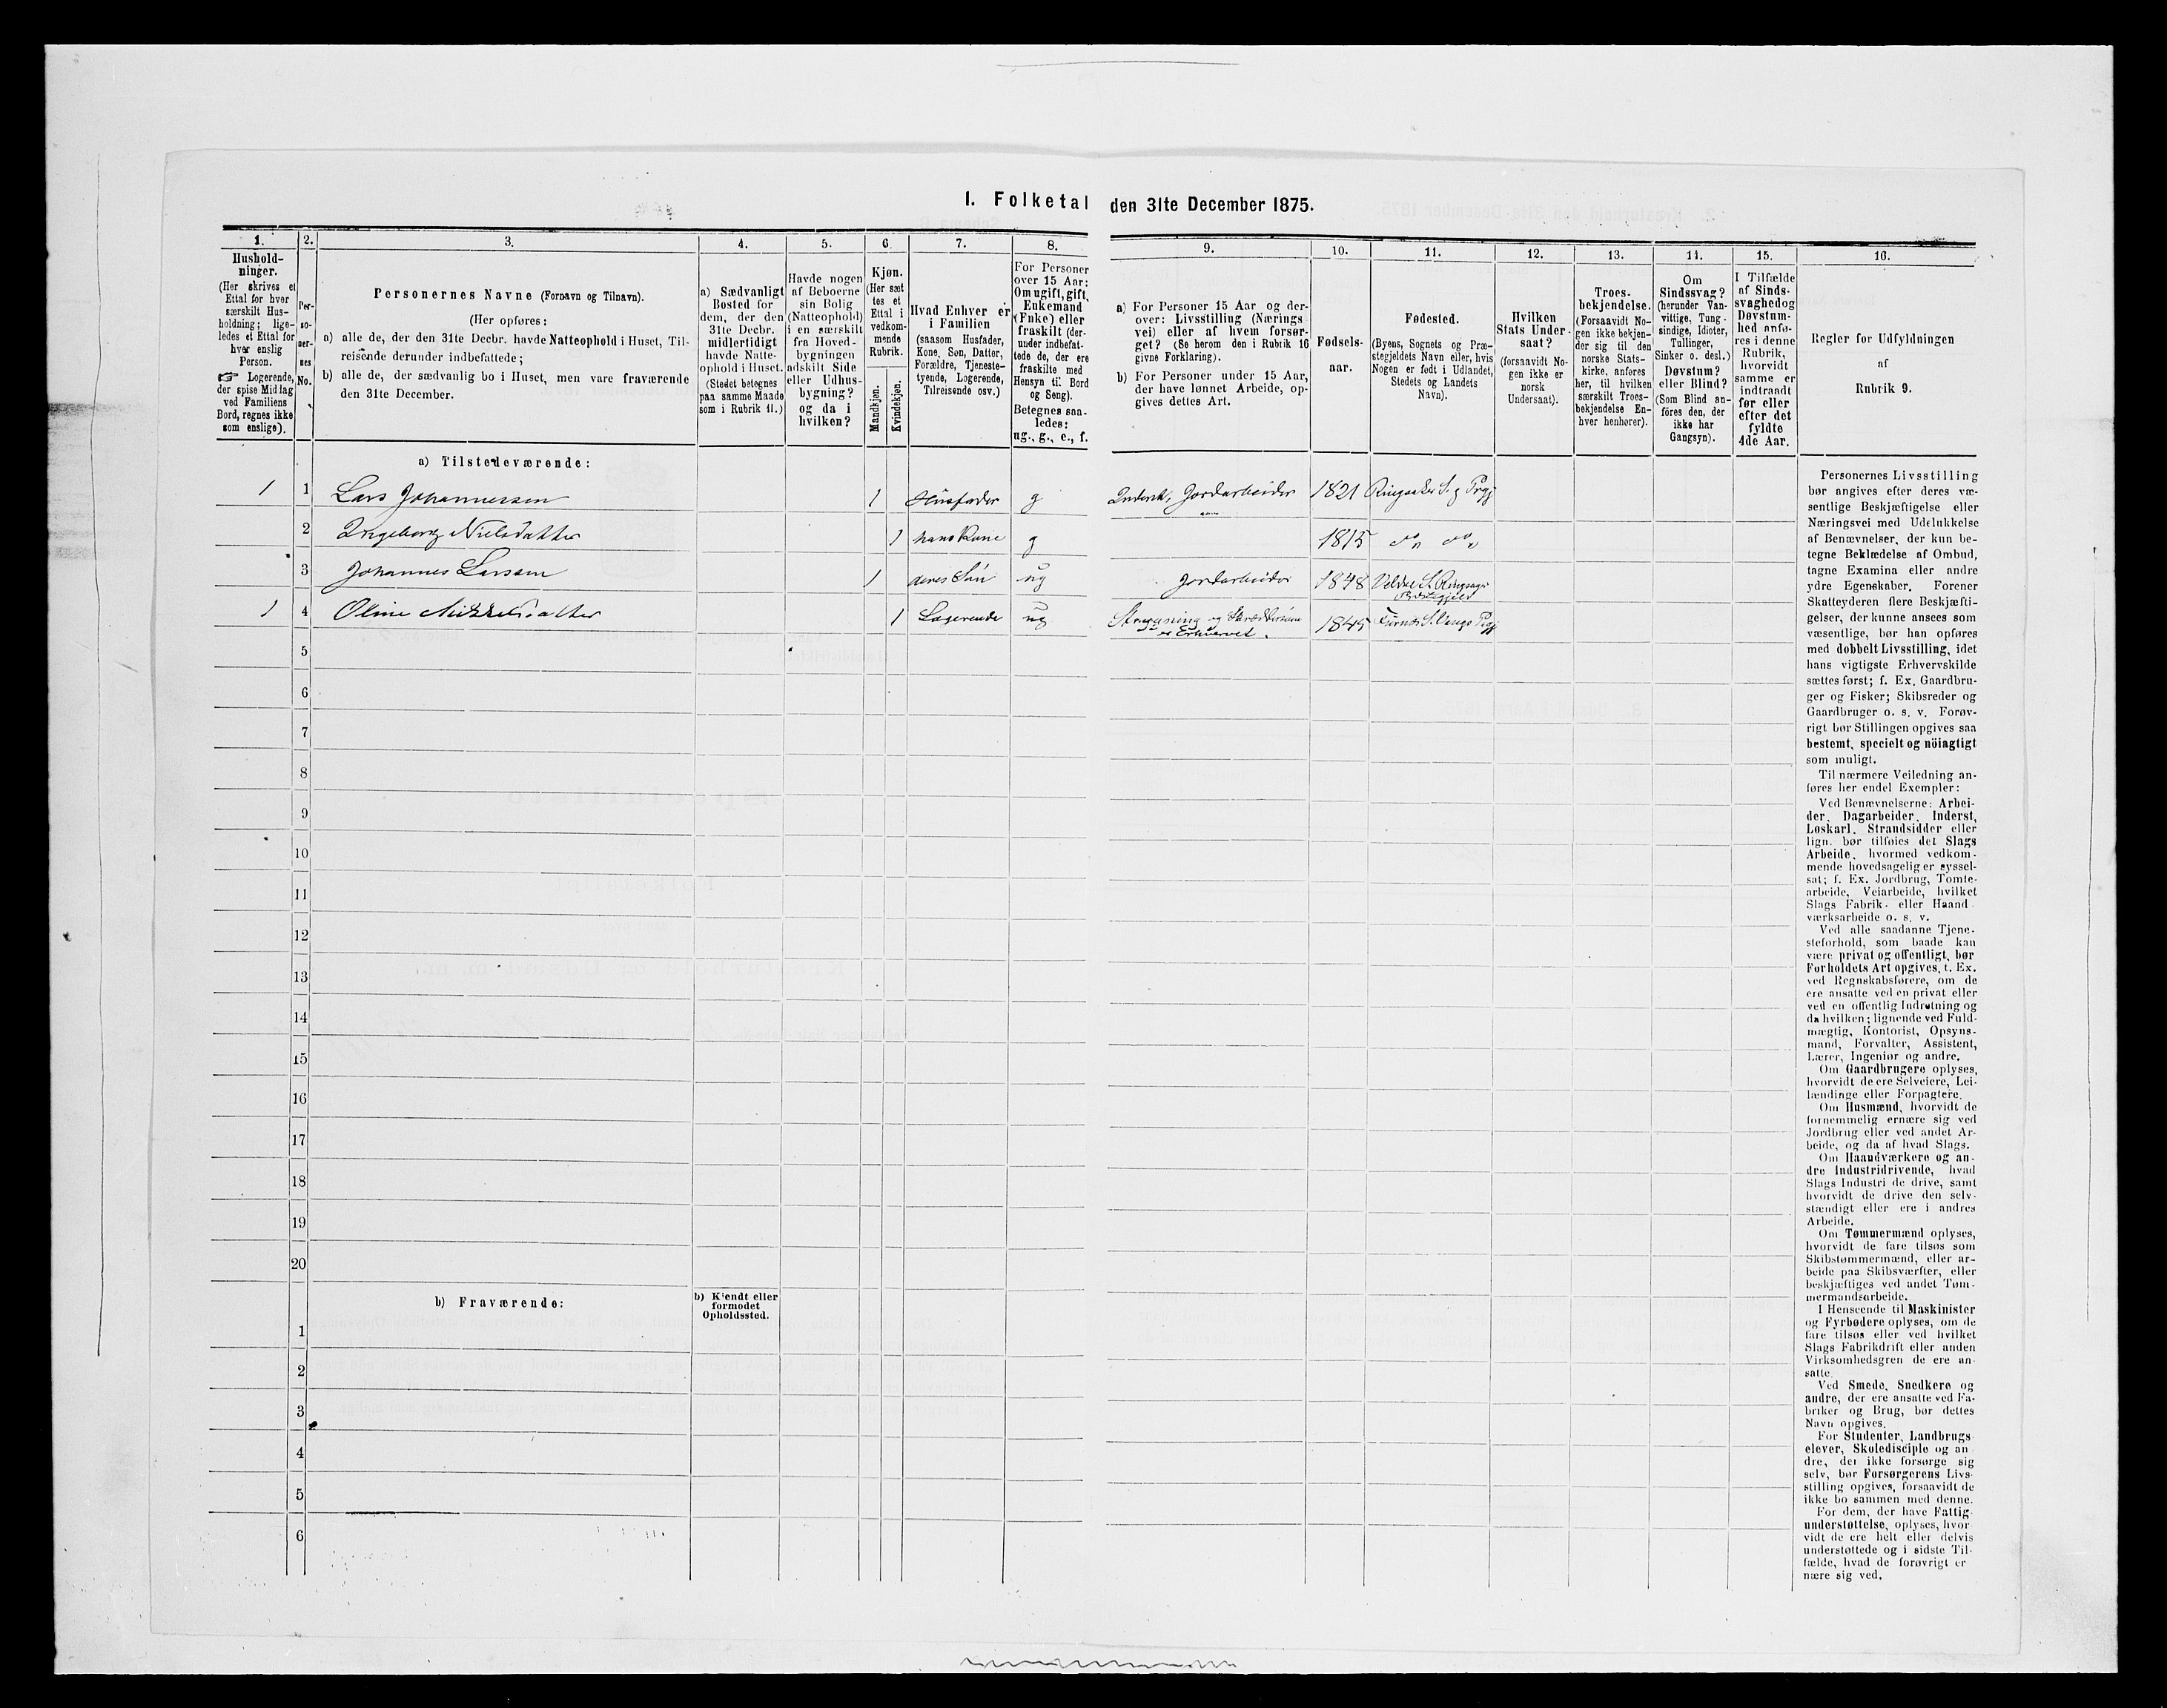 I. Folketal den 31te December 1875.
1. 2. 3. 4. 5. 6. 7. 8. 9. 10. 11. 12. 13. 14. 15. 16.
Hushold-
ninger.
(Her skrives et
Ettal for hver
særskilt Hus-
holdning; lige-
ledes et Ettal for
hver enslig
Person.
☞ Logerende,
der spise Middag
ved Familiens
Bord, regnes ikke
som enslige).
Per-
so-
ner-
nes
No.
Personernes Navne (Fornavn og Tilnavn).
(Her opføres:
a) alle de, der den 31te Decbr. havde Natteophold i Huset, Til-
reisende derunder indbefattede;
b) alle de, der sædvanlig bo i Huset, men vare fraværende
den 31te December.
a) Sædvanligt
Bosted for
dem, der den
31te Decbr.
midlertidigt
havde Natte-
ophold i Huset.
(Stedet betegnes
paa samme Maade
som i Rubrik 11.)
Havde nogen
af Beboerne
sin Bolig
(Natteophold)
i en særskilt
fra Hoved-
bygningen
adskilt Side
eller Udhus-
bygning?
og da i
hvilken?
Kjøn.
(Her sæt
tes et
Ettal i
vedkom-
mende
Rubrik.
Mandkjøn.
Kvindekjøn.
Hvad Enhver er
i Familien
(saasom Husfader,
Kone, Søn, Datter,
Forældre, Tjeneste-
tyende, Logerende,
Tilreisende osv.)
For Personer
over 15 Aar:
Om ugift, gift,
Enkemand
(Enke) eller
fraskilt (der-
under indbefat-
tede de, der ere
fraskilte med
Hensyn til Bord
og Seng).
Betegnes saa-
ledes:
ug., g., e., f.
a) For Personer 15 Aar og der-
over: Livsstilling (Nærings
vei) eller af hvem forsør-
get? (Se herom den i Rubrik 16
givne Forklaring).
b) For Personer under 15 Aar,
der have lønnet Arbeide, op-
gives dettes Art.
Fødsels-
aar.
Fødested.
(Byens, Sognets og Præ-
stegjeldets Navn eller, hvis
Nogen er født i Udlandet,
Stedets og Landets
Navn).
Hvilken
Stats Under-
saat?
(forsaavidt No-
gen ikke er
norsk
Undersaat).
Troes-
bekjendelse.
(Forsaavidt No-
gen ikke bekjen-
der sig til den
norske Stats-
kirke, anføres
her, til hvilken
særskilt Troes-
bekjendelse En-
hver henhører).
Om
Sindssvag?
(herunder Van-
vittige, Tung-
sindige, Idioter,
Tullinger,
Sinker o. desl.)
Døvstum?
eller Blind?
(Som Blind an-
føres den, der
ikke har
Gangsyn).
I Tilfælde
af Sinds-
svaghed og
Døvstum-
hed anfø-
res i denne
Rubrik,
hvorvidt
samme er
indtraadt
før eller
efter det
fyldte
4de Aar.
Regler for Udfyldningen
af
Rubrik 9.
a) Tilstedeværende:
1 1 Lars Johannessen 1 Husfader g Inderst, Jordarbeider 1821 Ringsaker S. g Prgj
2 Ingeborg Nielsdatter 1 hans Kone g 1815 do do
3 Johannes Larsen 1 deres Søn ug Jordarbeider 1848 Veldre S. Ringsager
Præstegjeld
1 4 Oline Mikkelsdatter 1 Logerende ug og 1845 Furnes S. Vangs Prgj
er Erhvervet.
5
6
7
8
9
10
11
12
13
14
15
16
17
18
19
20
b) Fraværende:
b) Kjendt eller
formodet
Opholdssted.
1
2
3
4
5
6
Personernes Livsstilling
bør angives efter deres væ-
sentlige Beskjæftigelse eller
Næringsvei med Udelukkelse
af Benævnelser, der kun be-
tegne Beklædelse af Ombud,
tagne Examina eller andre
ydre Egenskaber. Forener
Skatteyderen flere Beskjæfti-
gelser, der kunne ansees som
væsentlige, bør han opføres
med dobbelt Livsstilling, idet
hans vigtigste Erhvervskilde
sættes først; f. Ex. Gaardbru-
ger og Fisker; Skibsreder og
Gaardbruger o. s. v. Forøv-
rigt bør Stillingen opgives saa
bestemt, specielt og nöiagtigt
som muligt.
Til nærmere Veiledning an-
føres her endel Exempler:
Ved Benævnelserne: Arbei-
der, Dagarbeider, Inderst,
Løskarl, Strandsidder eller
lign. bør tilføies det Slags
Arbeide, hvormed vedkom-
mende hovedsagelig er syssel-
sat; f. Ex. Jordbrug, Tomte-
arbeide, Veiarbeide, hvilket
Slags Fabrik- eller Haand-
værksarbeide o. s. v.
Ved alle saadanne Tjene-
steforhold, som baade kan
være privat og offentligt, bør
Forholdets Art opgives, t. Ex.
ved Regnskabsførere, om de
ere ansatte ved en privat eller
ved en offentlig Indretning og
da hvilken; lignende ved Fuld-
mægtig, Kontorist, Opsyns-
mand, Forvalter, Assistent,
Lærer, Ingeniør og andre.
Om Gaardbrugere oplyses,
hvorvidt de ere Selveiere, Lei-
lændinge eller Forpagtere.
Om Husmænd, hvorvidt de
fornemmelig ernære sig ved
Jordbrug eller ved andet Ar-
beide, og da af hvad Slags.
Om Haandværkere og an-
dre Industridrivende, hvad
Slags Industri de drive, samt
hvorvidt de drive den selv-
stændigt eller ere i andres
Arbeide.
Om Tømmermænd oplyses,
hvorvidt de fare tilsøs som
Skibstømmermænd, eller ar-
beide paa Skibsværfter, eller
beskjæftiges ved andet Tøm-
mermandsarbeide.
I Henseende til Maskinister
og Fyrbødere oplyses, om de
fare tilsøs eller ved hvilket
Slags Fabrikdrift eller anden
Virksomhedsgren de ere an-
satte.
Ved Smede, Snedkere og
andre, der ere ansatte ved Fa-
briker og Brug, bør dettes
Navn opgives.
For Studenter, Landbrugs-
elever, Skoledisciple og an-
dre, der ikke forsørge sig
selv, bør Forsørgerens Livs-
stilling opgives, forsaavidt de
ikke bo sammen med denne.
For dem, der have Fattig-
understøttelse, oplyses, hvor-
vidt de ere helt eller delvis
understøttede og i sidste Til-
fælde, hvad de forøvrigt er-
nære sig ved.